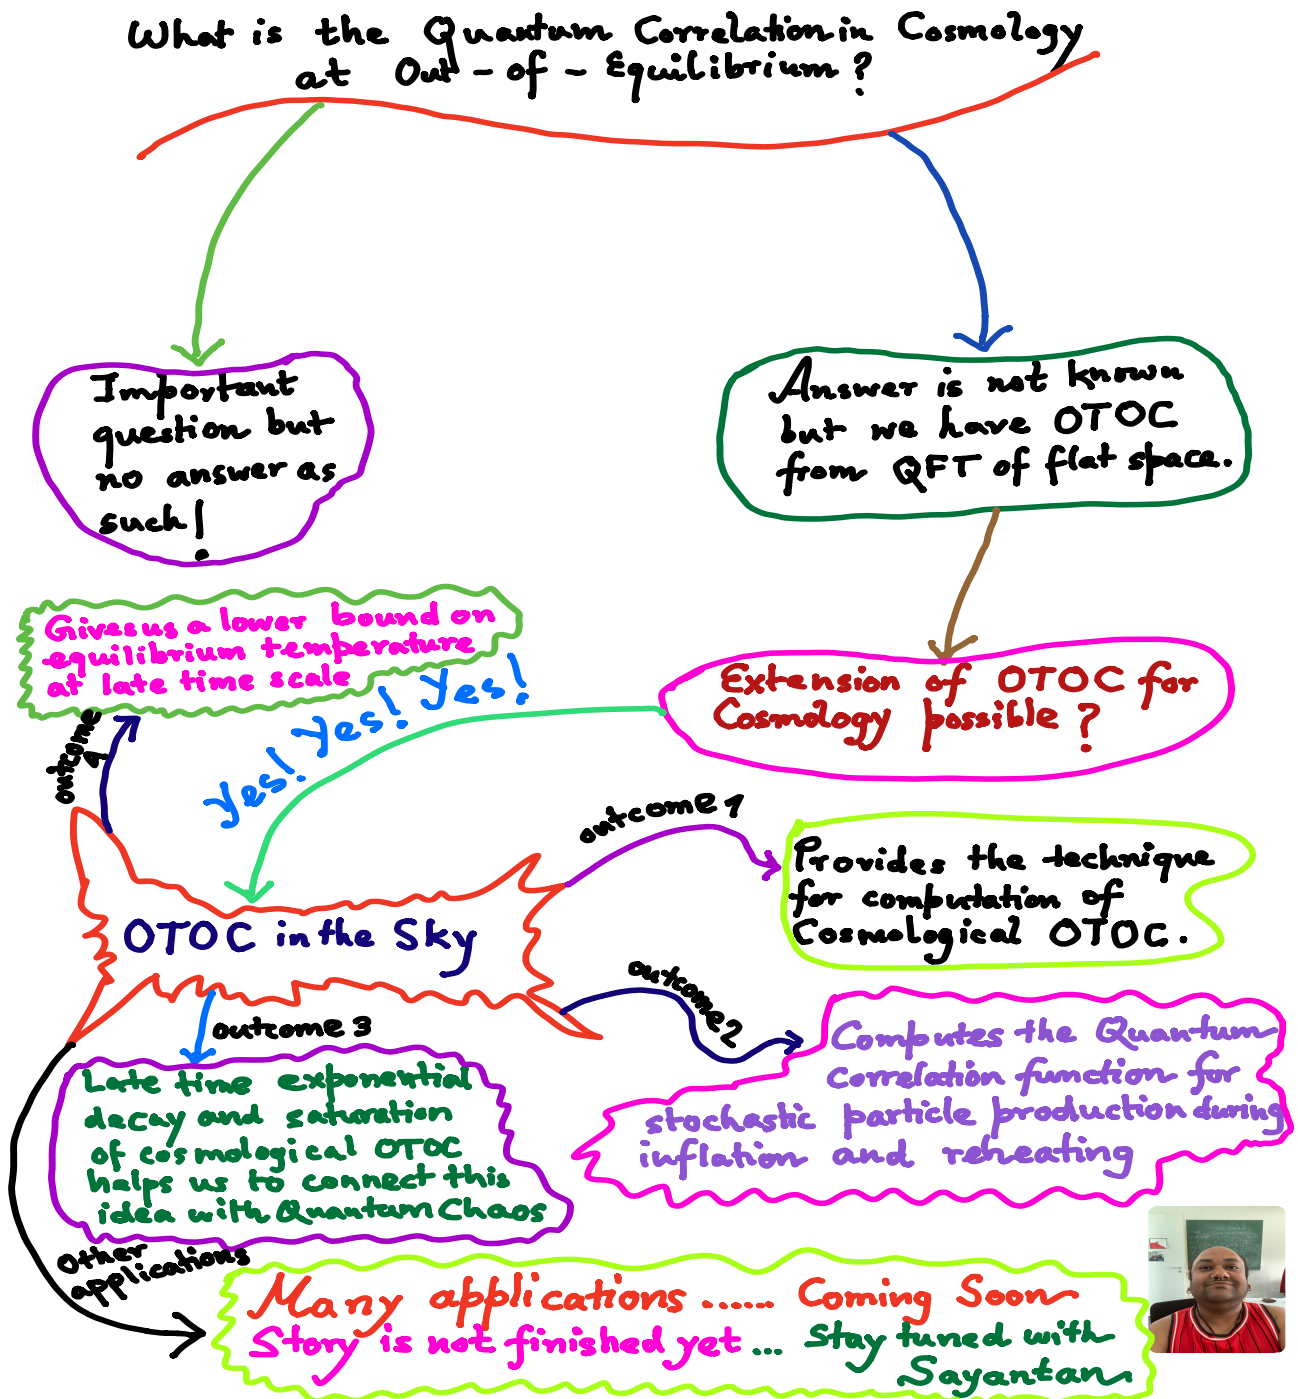 What is the Quantum Correlation in Cosmology
at Out-of-Equilibrium?
Important
question but
no answer as
such!
Answer is not known
but we have OTOC
from QFT of flat space.
Gives us a lower bound on
equilibrium temperature
at late time scale
outcome
4
Yes! Yes! Yes!
Extension of OTOC for
Cosmology possible?
outcome 1
Provides the technique
for computation of
Cosmological OTOC.
OTOC in the Sky
outcome 2
Computes the Quantum
Correlation function for
stochastic particle production during
inflation and reheating
outcome 3
Late time exponential
decay and saturation
of cosmological OTOC
helps us to connect this
idea with Quantum Chaos
Other
applications
Many applications ...... Coming Soon
Story is not finished yet ... Stay tuned with
Sayantan.